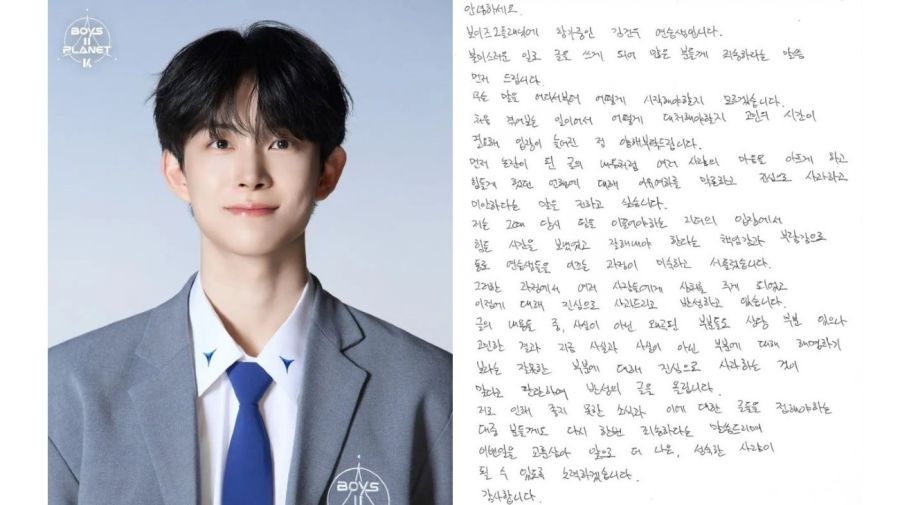 BOYS
II
PLANET
K
BOYS
II
안녕하세요.
보이즈 2 플래닛에 참가중인 김건우 연습생입니다.
불미스러운 일로 글을 쓰게 되어 많은 분들께 죄송하다는 말씀
먼저 드립니다.
무슨 말을 어디서부터 어떻게 시작해야할지 모르겠습니다.
처음 겪어보는 일이어서 어떻게 대처해야할지 고민의 시간이
필요해 입장이 늦어진 점 양해부탁드립니다.
먼저 논란이 된 글의 내용처럼 여러 사람의 마음을 아프게 하고
힘들게 했던 언행에 대해 이유여하를 막론하고 진심으로 사과하고
미안하다는 말을 전하고 싶습니다.
저는 그때 당시 팀을 이끌어야하는 리더의 입장에서
힘든 시간을 보냈었고 잘해내야 한다는 책임감과 부담감으로
동료 연습생들을 이끄는 과정이 미숙하고 서툴렀습니다.
그러한 과정에서 여러 사람들에게 상처를 주게 되었고
이점에 대해 진심으로 사과드리고 반성하고 있습니다.
글의 내용들 중, 사실이 아닌 왜곡된 부분들도 상당 부분 있으나
고민한 결과 지금 사실과 사실이 아닌 부분에 대해 해명하기
보다는 잘못한 부분에 대해 진심으로 사과하는 것이
맞다고 판단하여 반성의 글을 올립니다.
저로 인해 좋지 못한 소식과 이에 대한 글들을 접해야하는
대중 분들께도 다시 한번 죄송하다는 말씀드리며
이번일을 교훈삼아 앞으로 더 나은, 성숙한 사람이
될 수 있도록 노력하겠습니다.
감사합니다.